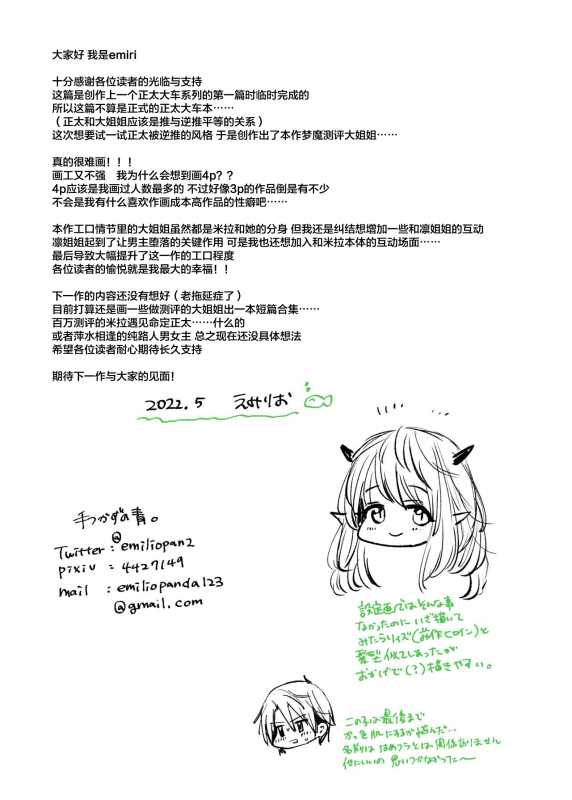 大家好 我是emiri
十分感谢各位读者的光临与支持
这篇是创作上一个正太大车系列的第一篇时临时完成的
所以这篇不算是正式的正太大车本……
（正太和大姐姐应该是推与逆推平等的关系）
这次想要试一试正太被逆推的风格 于是创作出了本作梦魔测评大姐姐……
真的很难画！！！
画工又不强　我为什么会想到画4p？？
4p应该是我画过人数最多的 不过好像3p的作品倒是有不少
不会是我有什么喜欢作画成本高作品的性癖吧……
本作工口情节里的大姐姐虽然都是米拉和她的分身 但我还是纠结想增加一些和凛姐姐的互动
凛姐姐起到了让男主堕落的关键作用 可是我也还想加入和米拉本体的互动场面……
最后导致大幅提升了这一作的工口程度
各位读者的愉悦就是我最大的幸福！！
下一作的内容还没有想好（老拖延症了）
目前打算还是画一些做测评的大姐姐出一本短篇合集……
百万测评的米拉遇见命定正太……什么的
或者萍水相逢的纯路人男女主 总之现在还没具体想法
希望各位读者耐心期待长久支持
期待下一作与大家的见面！
2022.5 えみりお
手つかずの青。
@
Twitter：emiliopan2
pixiv ：4427149
mail ：emiliopanda123
@gmail.com
設定画ではそんな事
なかったのに いざ描いて
みたらリイズ(前作ヒロイン)と
髪型 似てしまったが
おかげで(？)描きやすい。
この子は最後まで
かっ色肌にするか悩んだ…
名前は はめフラとは関係ありません
他にいいの 思いつかなかった〜